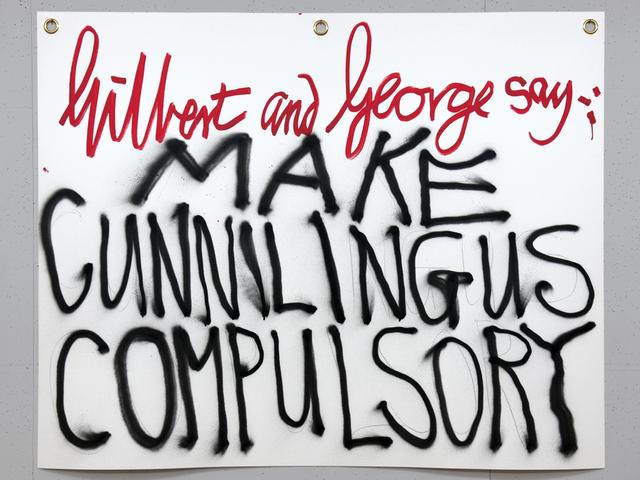 Gilbert and George say:
MAKE
CUNNILINGUS
COMPULSORY